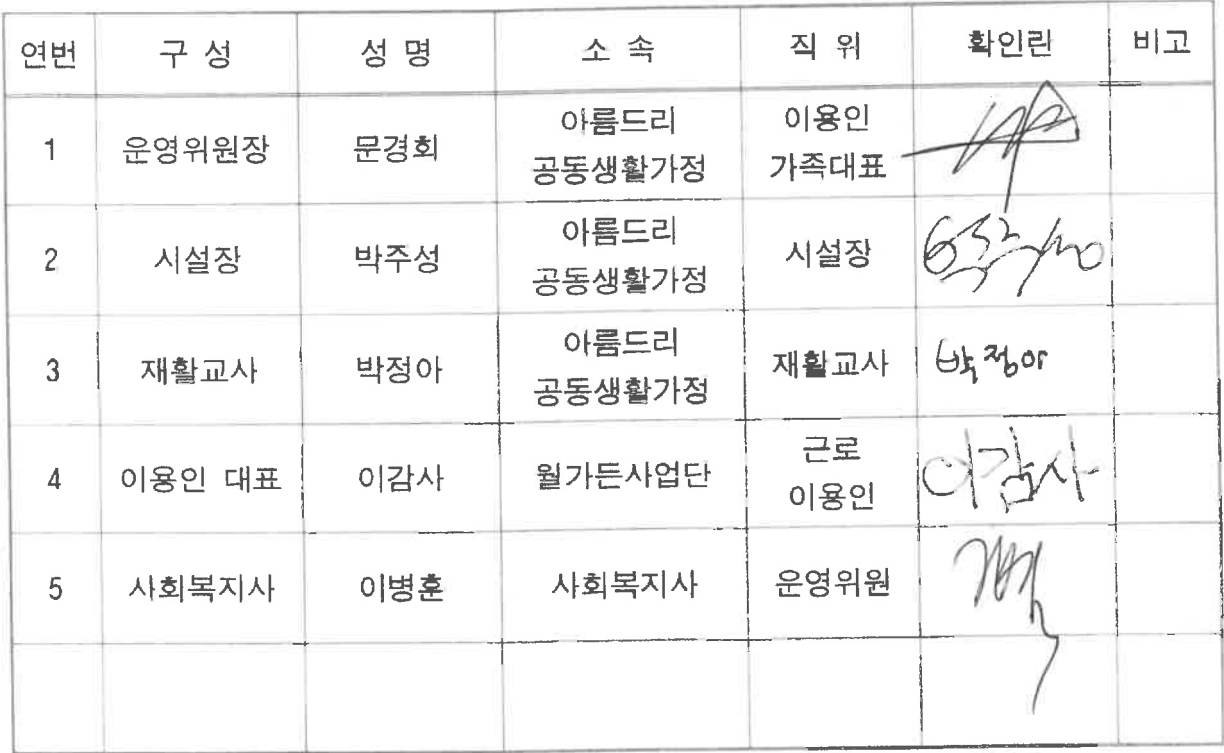 연번 구 성 성 명 소 속 직 위 확인란 비고
1 운영위원장 문경회 아름드리 공동생활가정 이용인 가족대표
2 시설장 박주성 아름드리 공동생활가정 시설장
3 재활교사 박정아 아름드리 공동생활가정 재활교사 박정아
4 이용인 대표 이감사 월가든사업단 근로 이용인 이감사
5 사회복지사 이병훈 사회복지사 운영위원